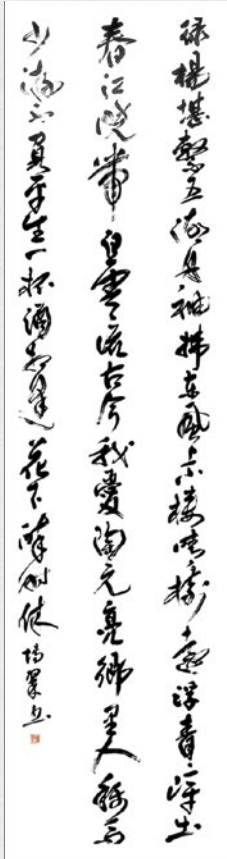 緑楊堪繫五湖舟袖拂東風上小樓晴樹遠浮青嶂出
春江曉帶白雲流古今我愛陶元亮鄉里人稱馬
少游不負平生一杯酒相逢花下醉時休